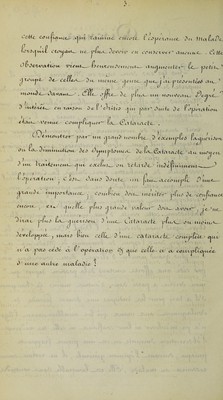 3.
cette confiance qui ranime encore l'espérance du malade
lorsqu'il croyait ne plus devoir en conserver aucune. Cette
observation viens heureusement augmenter le petit
groupe de celles du même genre que j'ai présentées au
monde savant. Elle offre de plus un nouveau Degré
d'intérêt en raison de l'Iritis qui par suite de l'opération
était venue compliquer la Cataracte.
Démontrer par un grand nombre d'exemples la guérison
ou la diminution des Symptômes de la Cataracte au moyen
d'un traitement qui exclut ou retarde indéfiniment
l'opération, c'est sans doute un fait accompli d'une
grande importance, combien doit mériter plus de confiance
encore et quelle plus grande valeur doit avoir, je ne
dirai plus la guérison d'une Cataracte plus ou moins
développée, mais bien celle d'une cataracte complète qui
n'a pas cédé à l'opération et que celle-ci a compliquée
d'une autre maladie!